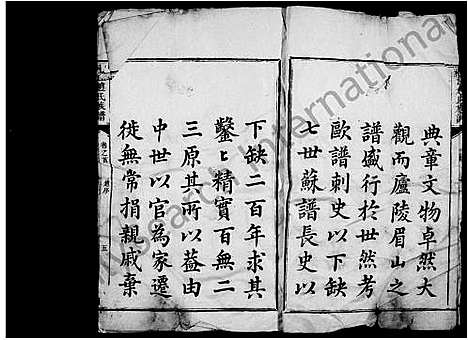 典章文物卓然大
觀而廬陵眉山之
譜盛行於世然考
歐譜刺史以下缺
七世蘇譜長史以
下缺二百年求其
鑿鑿精實百無二
三原其所以葢由
中世以官為家遷
徙無常捐親戚棄
趙氏族譜
卷之首
五